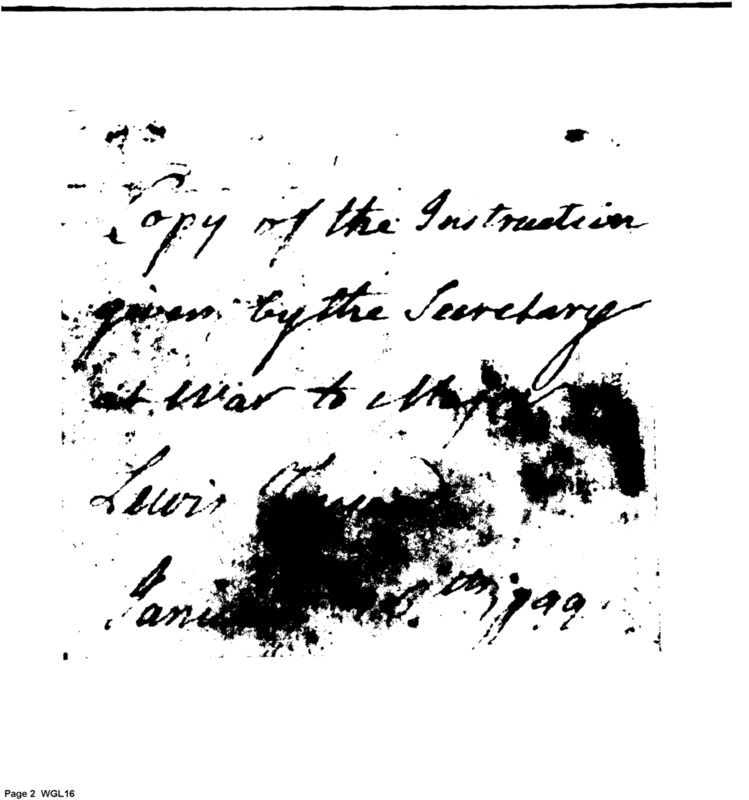 Copy of the Instruction
given by the Secretary
at War to Major
Lewis
1799
Page 2 WGL16